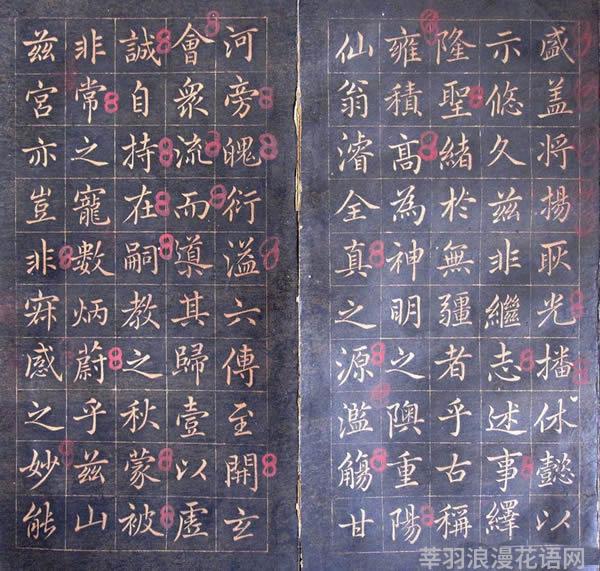 盛盖将揚耿光播休懿以
示悠久兹非繼志述事繹
隆聖緒於無疆者乎古稱
雍積高為神明之隩重陽
仙翁濬全真之源濫觴甘
河旁魄衍溢六傳至開玄
會衆流而導其歸壹以虛
誠自持在嗣教之秋蒙被
非常之寵數炳蔚乎兹山
兹宮亦豈非寂感之妙能
莘羽浪漫花语网